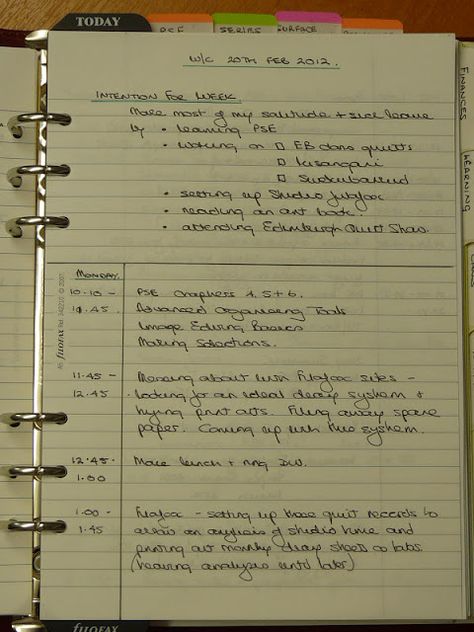 TODAY
PSE
SERIES
SURFACE
FINANCES
LEARNING
W/C 20TH FEB 2012.
INTENTION FOR WEEK.
Make most of my solitude + sick leave
by • learning PSE
• working on □ EB dans quilts
□ Kisangani
□
• setting up Studio filofax
• reading an art book.
• attending Edinburgh Quilt Show.
MONDAY.
10.10 - PSE Chapters 4, 5 + 6.
10.45. Advanced Organising Tools
Image Editing Basics
Making Selections.
11.45 - Messing about with filofax sites -
12.45 - looking for an ideal diary system +
trying print outs. Filing away spare
paper. Coming up with this system.
12.45. Make lunch + ring DW.
1.00
1.00 - Filofax - setting up those quilt records to
1.45 allow an analysis of studio time and
printing out monthly diary sheets as tabs.
(leaving analysis until later)
A5 filofax Ref. 342210 © 2007
filofax